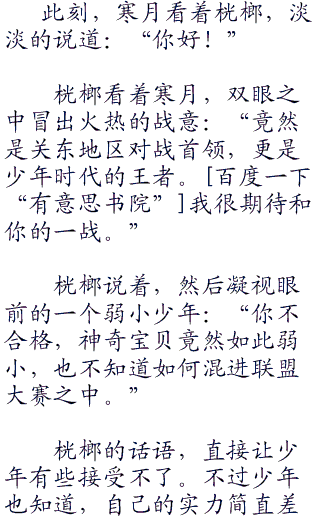 此刻，寒月看着桄榔，淡
淡的说道：“你好！”
桄榔看着寒月，双眼之
中冒出火热的战意：“竟然
是关东地区对战首领，更是
少年时代的王者。[百度一下
“有意思书院”]我很期待和
你的一战。”
桄榔说着，然后凝视眼
前的一个弱小少年：“你不
合格，神奇宝贝竟然如此弱
小，也不知道如何混进联盟
大赛之中。”
桄榔的话语，直接让少
年有些接受不了。不过少年
也知道，自己的实力简直差